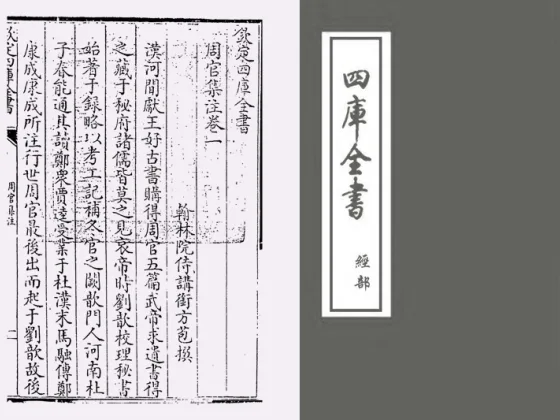 四庫全書
經部
欽定四庫全書
周官集注卷一
翰林院侍講銜方苞撰
漢河間獻王好古書購得周官五篇武帝求遺書得
之藏于秘府諸儒皆莫之見哀帝時劉歆校理秘書
始著于録略以考工記補冬官之闕歆門人河南杜
子春能通其讀鄭衆賈逵受業于杜漢末馬融傳鄭
康成康成所注行世周官最後出而起于劉歆故後
欽定四庫全書
周官集注